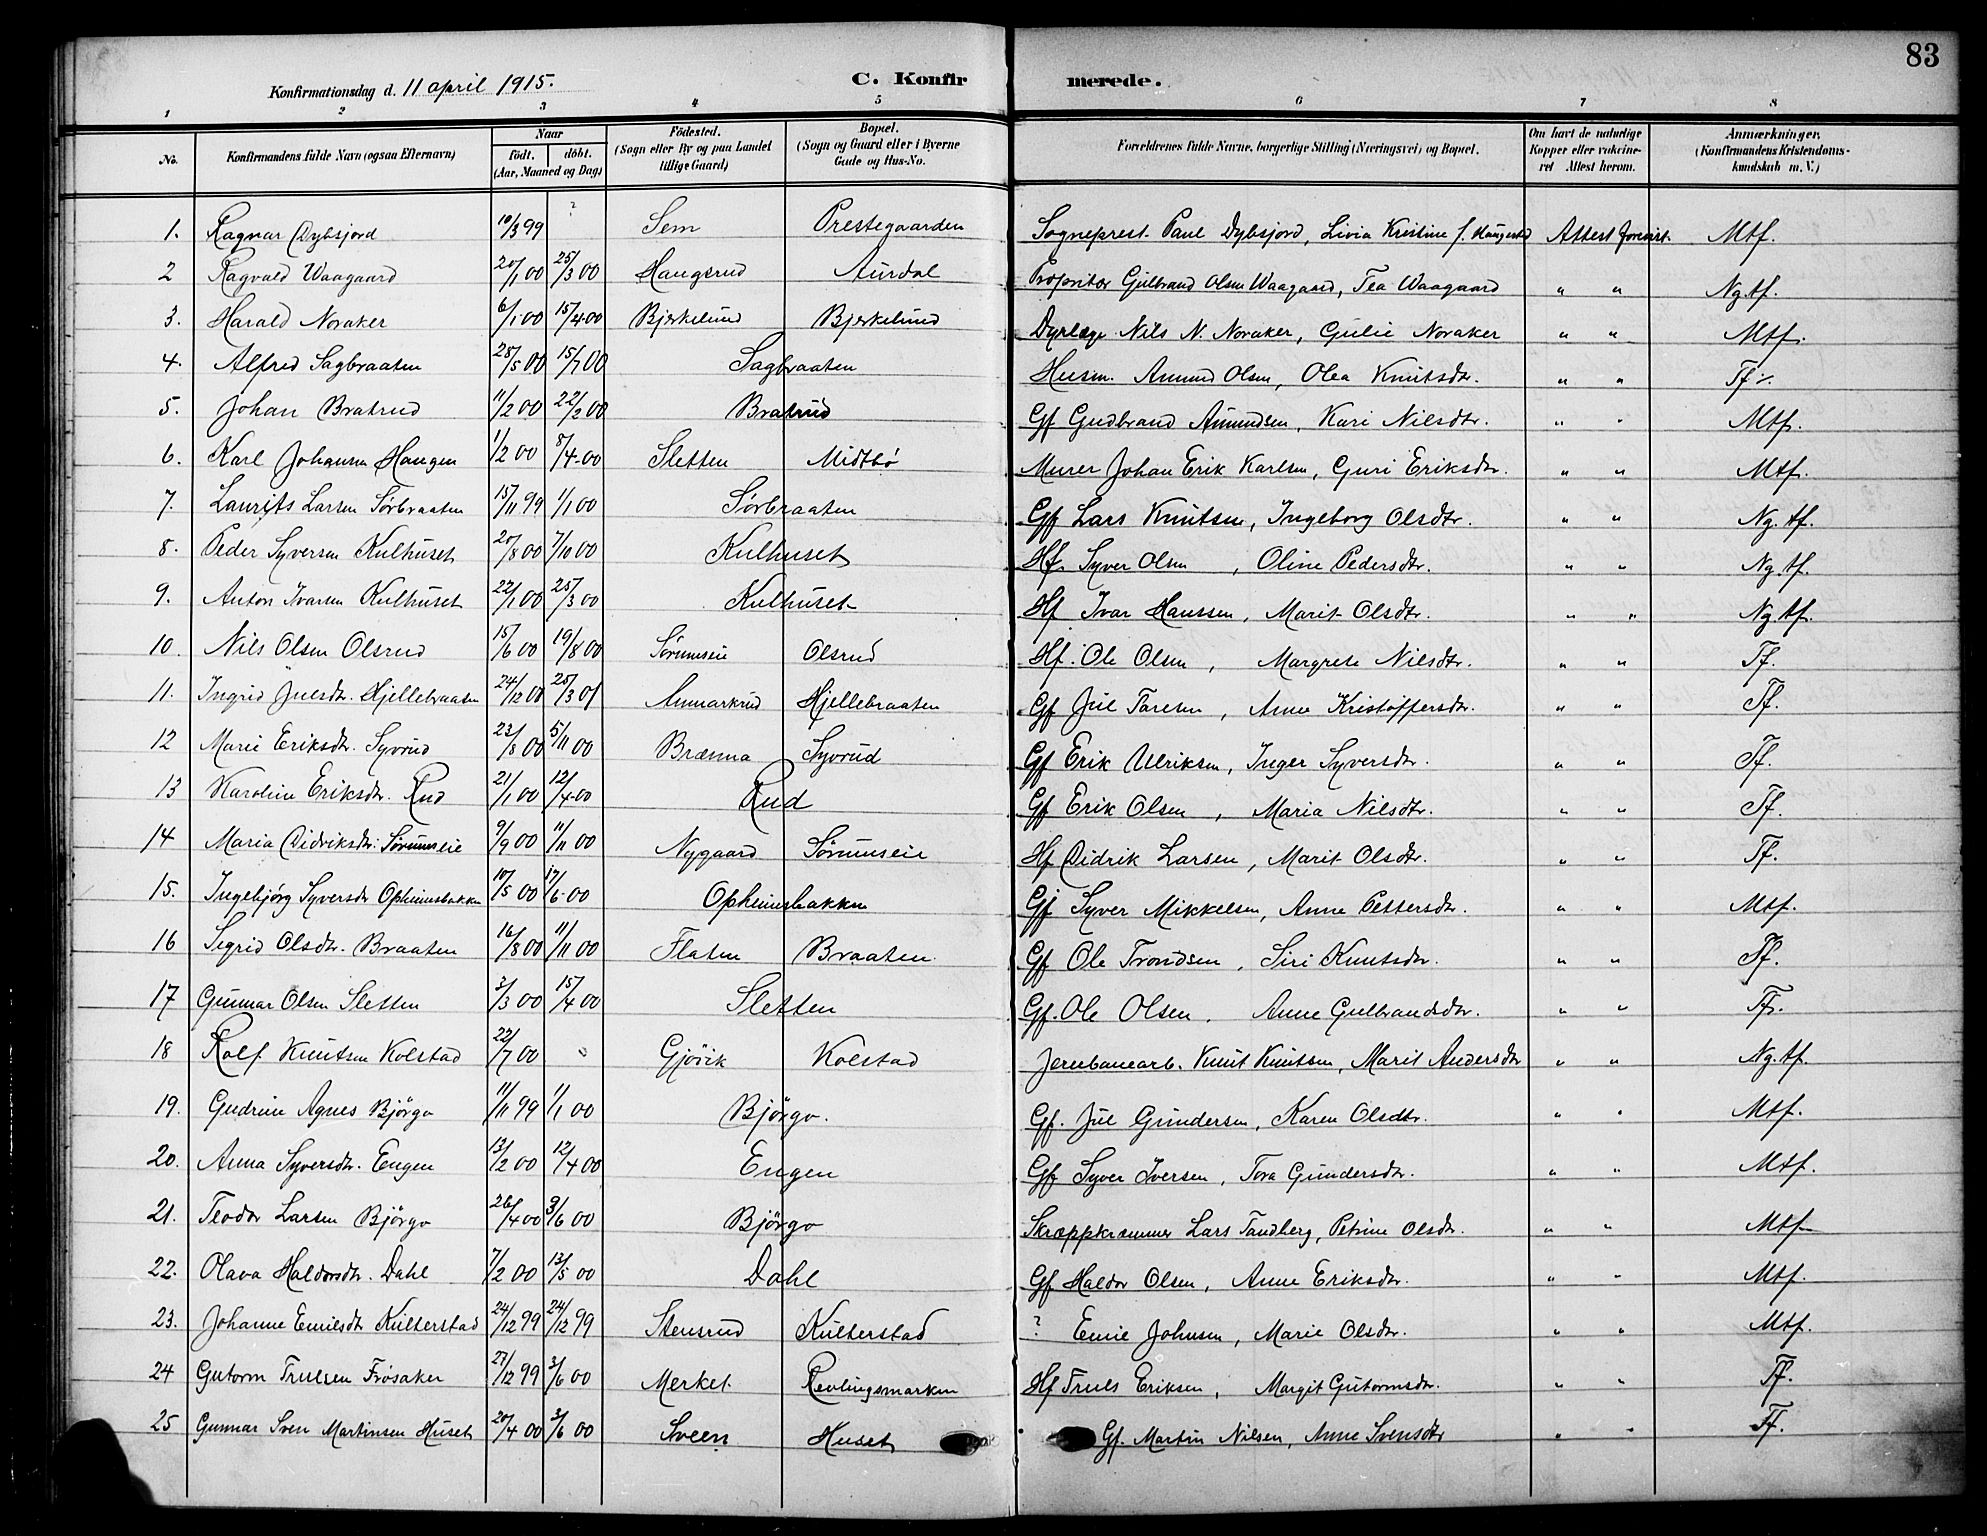 83
Konfirmationsdag d. 11 april 1915.
C. Konfirmerede.
1 2 3 4 5 6 7 8
No. Konfirmandens fulde Navn (ogsaa Efternavn) Naar födt. döbt. (Aar, Maaned og Dag) Födested. (Sogn eller By og paa Landet tillige Gaard) Bopæl. (Sogn og Gaard eller i Byerne Gade og Hus-No. Forældrenes fulde Navne, borgerlige Stilling (Næringsvei) og Bopæl. Om havt de naturlige Kopper eller vakcineret Attest herom. Anmærkninger. (Konfirmandens Kristendomskundskab m. V.)
1. Ragnar Dybsjord 10/3 99 ? Sem Prestegaarden Sogneprest Paul Dybsjord, Livia Kristine f. Haugestad Attest forevist. Mtf.
2 Ragvald Waagaard 20/1 00 25/3 00 Haugsrud Aurdal Propritær Gulbrand Olsen Waagaard, Tea Waagaard " " Ng.tf.
3. Harald Noraker 6/1 00 15/4 00 Bjerkelund Bjerkelund Dyrlæge Nils N. Noraker, Gulie Noraker " " Mtf.
4. Alfred Sagbraaten 28/5 00 15/7 00 Sagbraaten Husm. Amund Olsen, Olea Knutsdtr. " " Tf ٪.
5. Johan Bratrud 11/2 00 22/2 00 Bratrud Gf Gudbrand Amundsen, Kari Nilsdtr. " " Mtf.
6. Karl Johansen Haugen 1/2 00 8/4 00 Sletten Midtbö Murer Johan Erik Karlsen, Guri Eriksdtr. " " Mtf.
7. Laurits Larsen Sørbraaten 15/11 99 1/1 00 Sørbraaten Gf Lars Knutsen, Ingeborg Olsdtr. " " Ng.tf.
8. Peder Syversen Kulhuset 20/8 00 7/10 00 Kulhuset Hf. Syver Olsen, Oline Pedersdtr. " " Ng.tf.
9. Anton Ivarsen Kulhuset 22/1 00 25/3 00 Kulhuset Hf Ivar Hanssen, Marit Olsdtr. " " Ng.tf.
10. Nils Olsen Olsrud 15/6 00 19/8 00 Sørumseie Olsrud Hf. Ole Olsen, Margrete Nilsdtr. " " Tf.
11. Ingrid Julsdtr. Hjellebraaten 24/12 00 25/3 01 Annarkrud Hjellebraaten Gf Jul Taresen, Anne Kristoffersdtr. " " Tf.
12 Marie Eriksdtr. Syvrud 23/8 00 5/11 00 Brænna Syvrud Gf Erik Ulriksen, Inger Syversdtr. " " Tf.
13 Karoline Eriksdtr. Rud 21/1 00 12/4 00 Rud Gf Erik Olsen, Maria Nilsdtr. " " Tf.
14 Maria Didriksdtr. Sørumseie 9/9 00 11/11 00 Nygaard Sørumseie Hf Didrik Larsen, Marit Olsdtr. " " Tf.
15. Ingebjørg Syversdtr Opheimsbakken 10/5 00 17/6 00 Opheimsbakken Gf Syver Mikkelsen, Anne Pettersdtr. " " Mtf.
16 Sigrid Olsdtr. Braaten 16/8 00 11/11 00 Flaten Braaten. Gf Ole Trondsen, Siri Knutsdtr. " " Tf.
17 Gunnar Olsen Sletten 3/3 00 15/4 00 Sletten Gf. Ole Olsen, Anne Gulbrandsdtr. " " Tf.
18 Rolf Knutsen Kolstad 22/7 00 Gjövik Kolstad Jernbanearb. Knut Knutsen, Marit Andersdtr " " Ng.tf.
19. Gudrun Agnes Björgo 11/11 99 1/1 00 Björgo. Gf. Jul Gundersen, Karen Olsdtr. " " Mtf.
20. Anna Syversdtr. Engen 13/2 00 12/4 00 Engen Gf Syver Iversen, Tora Gundersdtr. " " Mtf.
21. Teodor Larsen Björgo 26/4 00 3/6 00 Björgo Skræppkræmmer Lars Tandberg, Petrine Olsdtr. " " Mtf
22. Olava Haldorsdtr. Dahl 7/2 00 13/5 00 Dahl Gf Haldor Olsen, Anne Eriksdtr. " " Mtf.
23. Johanne Emilsdtr Kulterstad 24/12 99 24/12 99 Stensrud Kulterstad ? Emil Johnsen, Marie Olsdtr. " " Mtf.
24 Gutorm Trulsen Frösaker 27/12 99 3/6 00 Merket. Revlingsmarken Hf Truls Eriksen, Margit Gutormsdtr. " " Tf.
25 Gunnar Sven Martinsen Huset 20/4 00 3/6 00 Sveen Huset Gf. Martin Nilsen, Anne Svensdtr " " Tf.